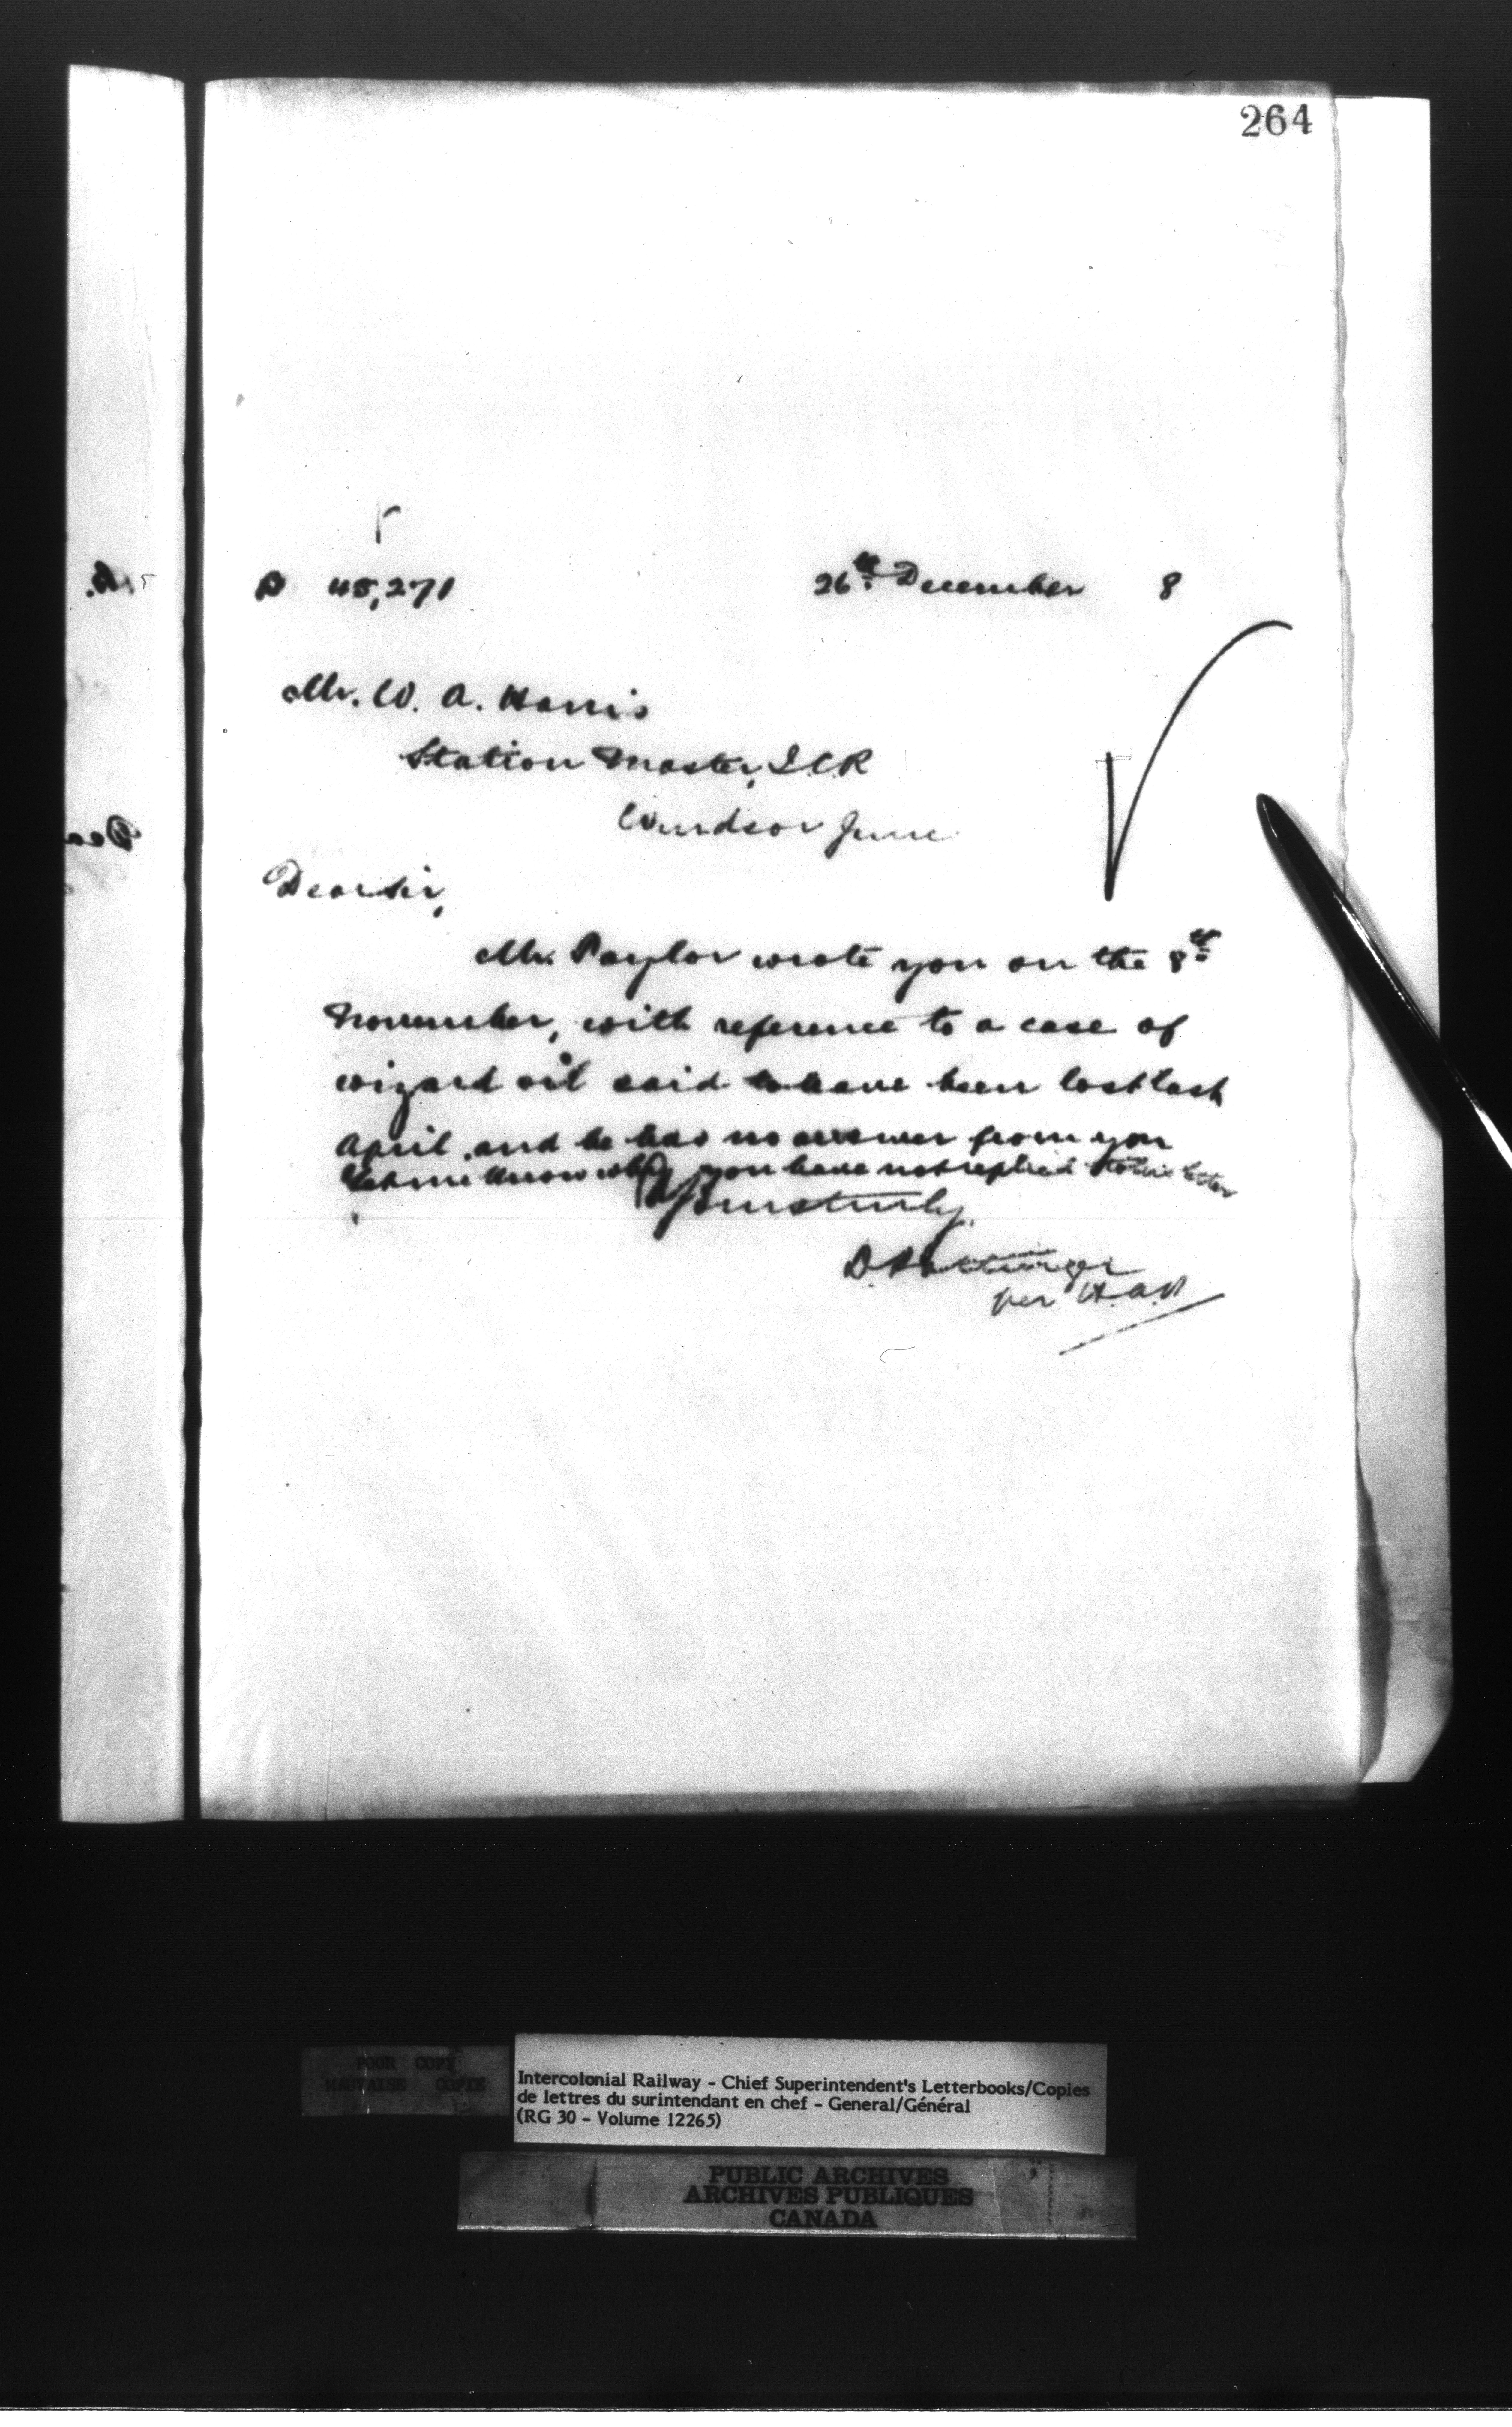 264
P 45,271 26th December 8
Mr. W. A. Harris
Station Master, I.C.R
Windsor Junc
Dear Sir,
Mr. Taylor wrote you on the 8th
November, with reference to a case of
wizard oil said to have been lost last
April, and he has no answer from you
Let me know why you have not replied to his letter
Yours truly,
D. Pottinger
per
POOR COPY
MAUVAISE COPIE
Intercolonial Railway - Chief Superintendent's Letterbooks/Copies
de lettres du surintendant en chef - General/Général
(RG 30 - Volume 12265)
PUBLIC ARCHIVES
ARCHIVES PUBLIQUES
CANADA